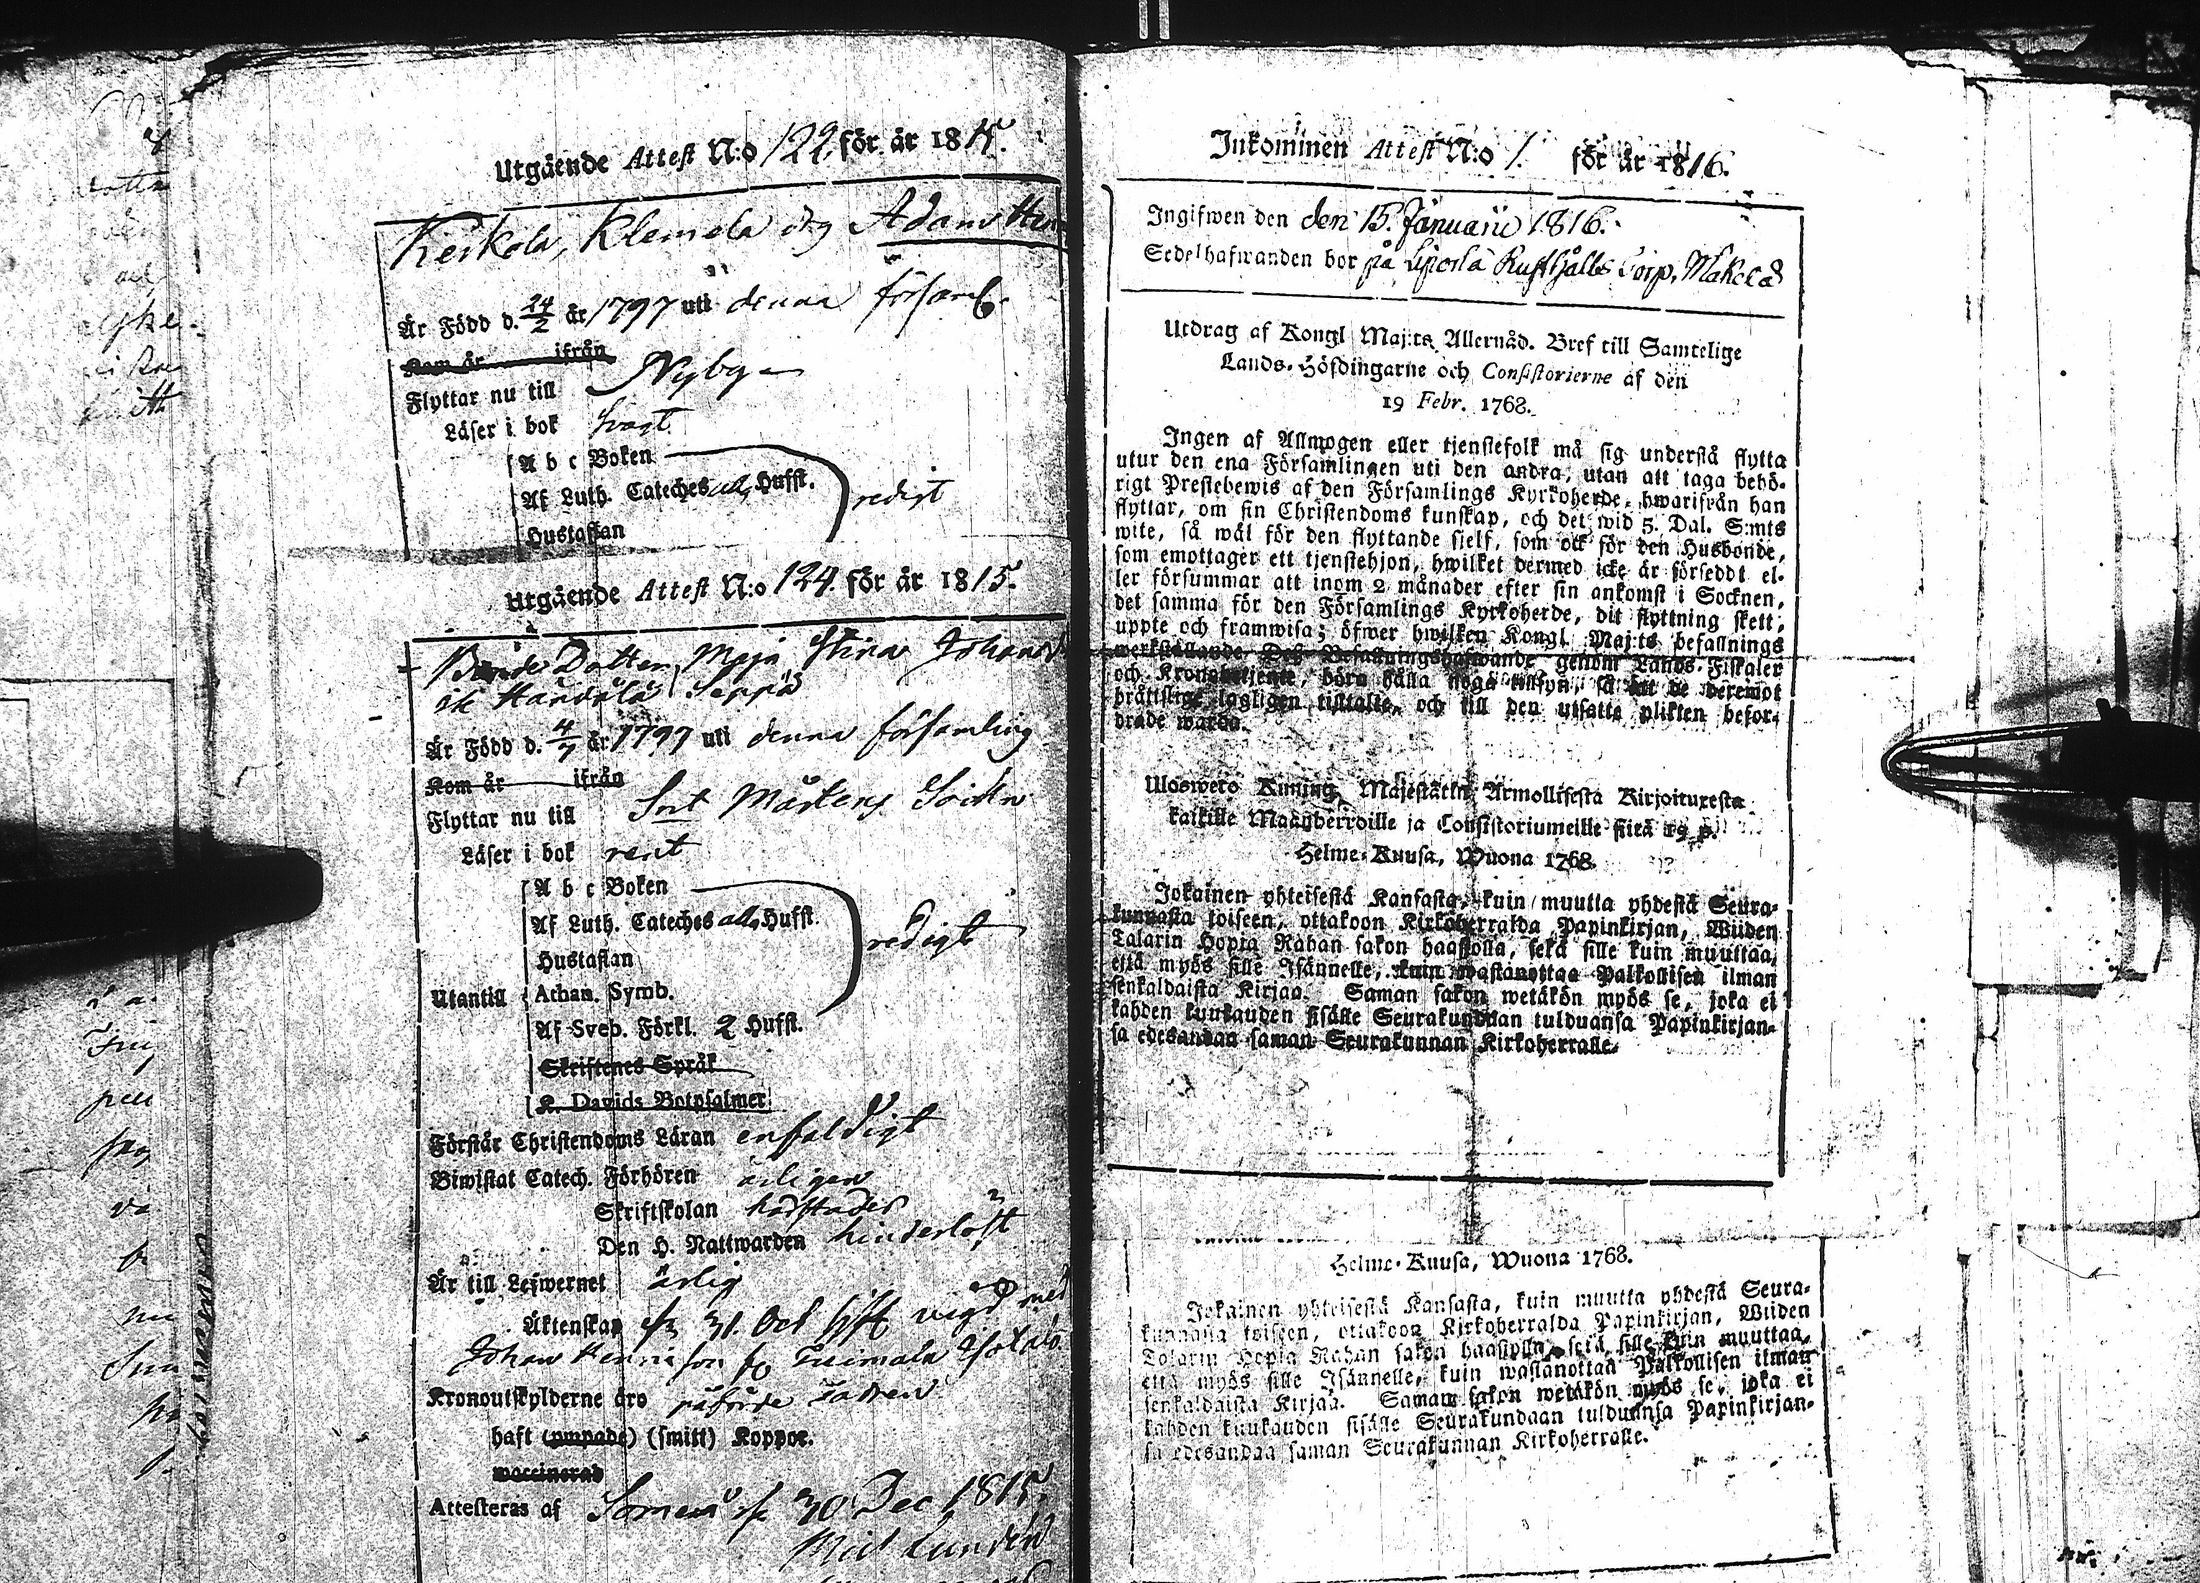 Utgående Attest N:o 122. för år 1815.
Keskola, Klemela drg Adam Hen
Är Född d. 24/2 år 1797 uti denna församl.
Kom år ifrån
Flyttar nu till Nyby
Läser i bok svagt
A b c Boken
Af Luth. Cateches alla Hufst. redigt
Hustaflan
Utgående Attest N:o 124. för år 1815.
Bonde Dottren Maja Stina Johansd
Seppä
Är Född d. 4/7 år 1797 uti denna församling
Kom år ifrån
Flyttar nu till Snt Mårtens Sockn
Läser i bok rent
A b c Boken
Af Luth. Cateches alla Hufst. redigt
Hustaflan
Utantill Athan. Symb.
Af Sveb. Förkl. 2 Hufst.
Skriftenes Språk
K. Davids Botpsalmer
Förstår Christendoms Läran enfaldigt
Biwistat Catech. Förhören årligen
Skriftskolan
Den H. Nattwarden hinderlöst
Är till Lefwernet ärlig
Äktenskap 31. Oct vigd med
Johan
Kronoutskylderne äro påförde
haft (ympade) (smitt) Koppor.
waccinerad
Attesteras af Somero 30 Dec 1815.
Lunden
Inkommen Attest N:o 1. för år 1816.
Ingifwen den den 15. Januarii 1816.
Sedelhafwanden bor på Liporla Rusthålls Torp, Mäkelä
Utdrag af Kongl Maj:ts Allernåd. Bref till Samtelige
Lands-Höfdingarne och Consistorierne af den
19 Febr. 1768.
Ingen af Allmogen eller tjenstefolk må sig understå flytta
utur den ena Församlingen uti den andra, utan att taga behö-
rigt Prestebewis af den Församlings Kyrkoherde, hwarifrån han
flyttar, om sin Christendoms kunskap, och det wid 5. Dal. S:mts
wite, så wäl för den flyttande sielf, som ock för den Husbonde,
som emottager ett tjenstehjon, hwilket dermed icke är försedt el-
ler försummar att inom 2 månader efter sin ankomst i Socknen,
det samma för den Församlings Kyrkoherde, dit flyttning skett,
uppte och framwisa; öfwer hwilken Kongl. Maj:ts befallnings
werkställande Des Befallningshafwande genom Lands-Fiskaler
och Kronobetjente, böra hålla noga tillsyn, så att de deremot
bråttslige lagligen tilltalte, och till den utsatta plikten befor-
drade warda.
Uloswetö Kuning. Majestätin Armollisesta Kirjoituxesta
kaikille Maanherroille ja Consistoriumeille siitä 19 p.
Helme-Kuusa, Wuona 1768.
Jokainen yhteisestä Kansasta, kuin muutta yhdestä Seura-
kunnasta toiseen, ottakoon Kirkoherralda Papinkirjan, Wiiden
Talarin Hopia Rahan sakon haastolla, sekä sille kuin muuttaa,
että myös sille Isännelle, kuin wastanottaa Palkollisen ilman
senkaldaista Kirjaa. Saman sakon wetäkön myös se, joka ei
kahden kuukauden sisälle Seurakundaan tulduansa Papinkirjan-
sa edesandaa saman Seurakunnan Kirkoherralle.
Helme-Kuusa, Wuona 1768.
Jokainen yhteisestä Kansasta, kuin muutta yhdestä Seura-
kunnasta toiseen, ottakoon Kirkoherralda Papinkirjan, Wiiden
Talarin Hopia Rahan sakon haastolla, sekä sille kuin muuttaa,
että myös sille Isännelle, kuin wastanottaa Palkollisen ilman
senkaldaista Kirjaa. Saman sakon wetäkön myös se, joka ei
kahden kuukauden sisälle Seurakundaan tulduansa Papinkirjan-
sa edesandaa saman Seurakunnan Kirkoherralle.